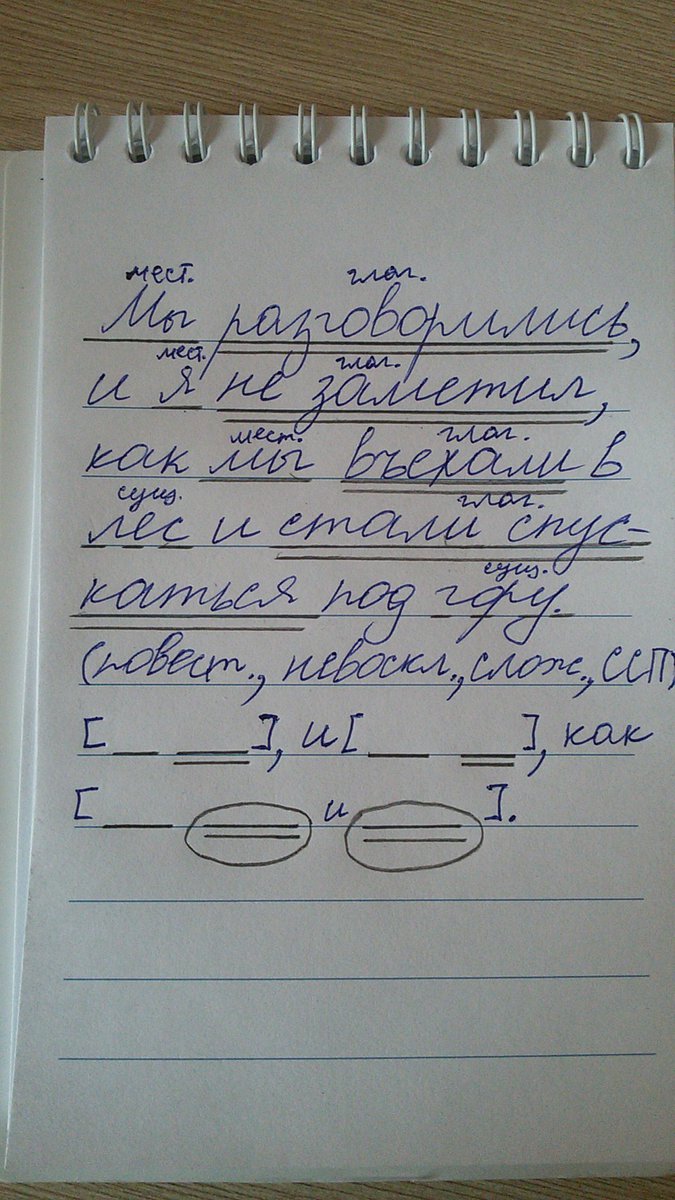 мест. глаг.
Мы разговорились,
мест. глаг.
и я не заметил,
мест. глаг.
как мы въехали в
сущ. глаг.
лес и стали спус-
сущ.
каться под гору.
(повест., невоскл., слож., ССП)
[ __ __ ], и [ __ __ ], как
[ __ __ и __ ].